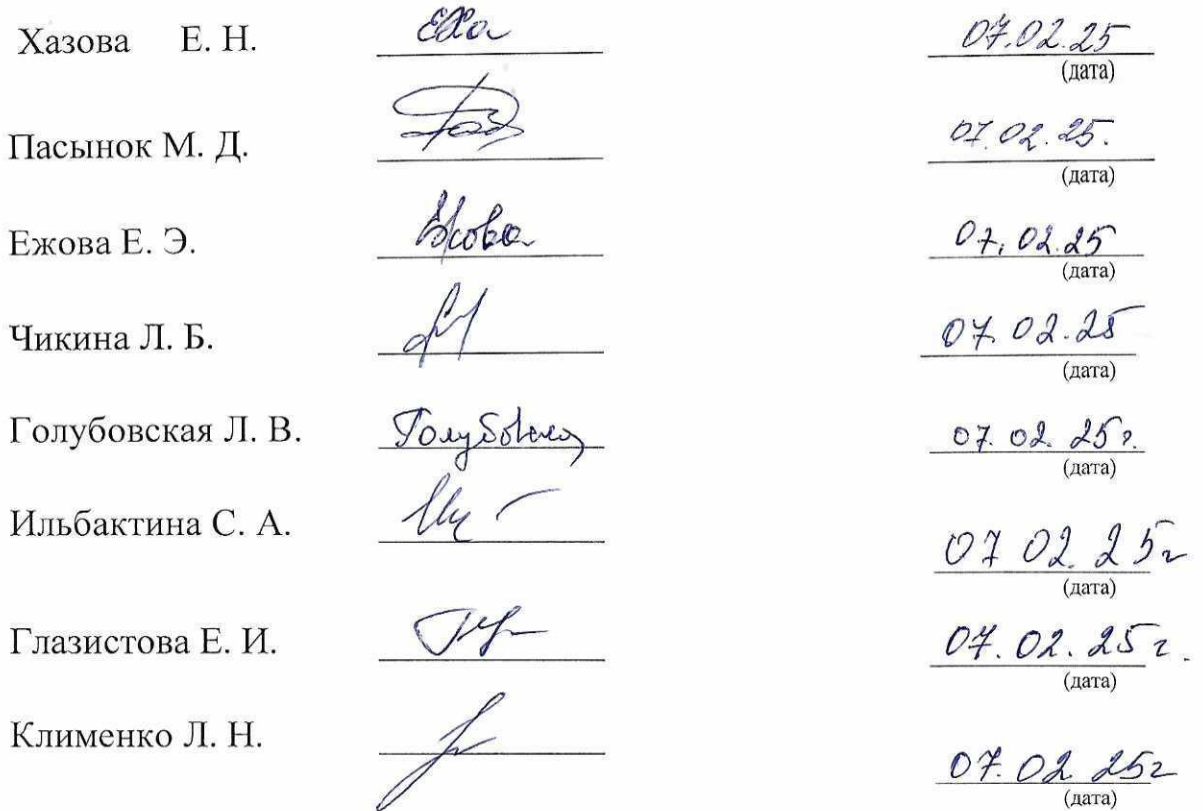 Хазова Е. Н. ЕХа 07.02.25
(дата)
Пасынок М. Д. 07.02.25.
(дата)
Ежова Е. Э. Ежова 07.02.25
(дата)
Чикина Л. Б. 07.02.25
(дата)
Голубовская Л. В. Голубовская 07.02.25г.
(дата)
Ильбактина С. А. 07 02.25г
(дата)
Глазистова Е. И. 07.02.25г.
(дата)
Клименко Л. Н. 07.02.25г
(дата)